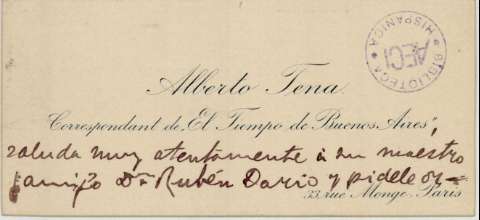 BIBLIOTECA HISPANICA
AECI
Alberto Tena
Correspondant de "El Tiempo de Buenos Aires",
saluda muy atentamente à su maestro
y amigo Dn Rubén Dario y pidele or-
33 rue Monge. Paris